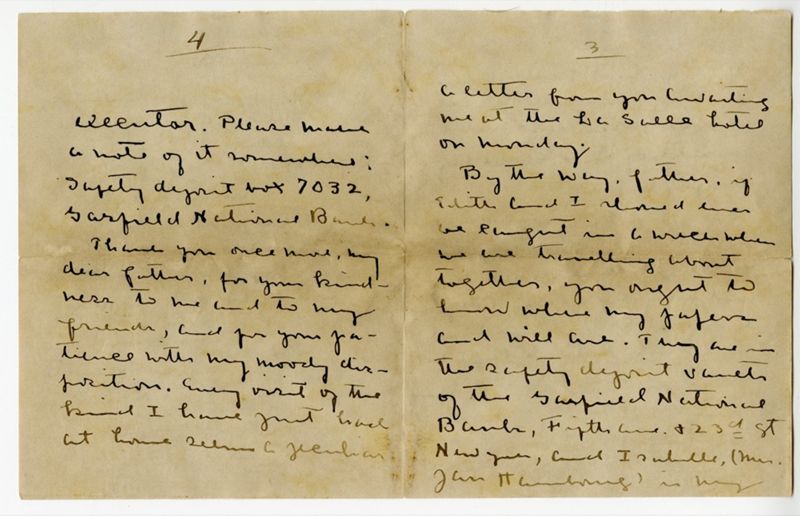 3
a letter from you awaiting
me at the La Salle hotel
on Monday.
By the way, father, if
Edith and I should ever
be caught in a wreck when
we are travelling about
together, you ought to
know where my papers
and will are. They are in
the safety deposit vaults
of the Garfield National
Bank, Fifth ave. & 23d St
New York, and Isabelle, (Mrs.
Jan Hambourg) is my
4
executor. Please make
a note of it somewhere:
Safety deposit box 7032,
Garfield National Bank.
Thank you once more, my
dear father, for your kind-
ness to me and to my
friends, and for your pa-
tience with my moody dis-
position. Every visit of the
kind I have just had
at home seems a peculiar